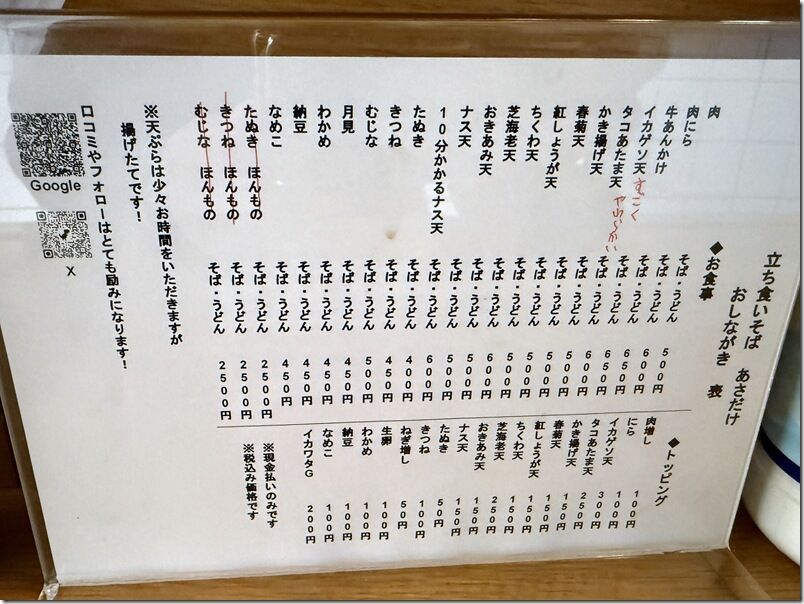 立ち食いそば あさだけ
おしながき 表
◆お食事
肉 そば・うどん 500円
肉にら そば・うどん 600円
牛あんかけ そば・うどん 650円
イカゲソ天 そば・うどん 650円
すごく
やわらかい
タコあたま天 そば・うどん 600円
かき揚げ天 そば・うどん 500円
春菊天 そば・うどん 500円
紅しょうが天 そば・うどん 500円
ちくわ天 そば・うどん 500円
芝海老天 そば・うどん 600円
おきあみ天 そば・うどん 500円
ナス天 そば・うどん 500円
10分かかるナス天 そば・うどん 600円
たぬき そば・うどん 400円
きつね そば・うどん 450円
むじな そば・うどん 500円
月見 そば・うどん 450円
わかめ そば・うどん 450円
納豆 そば・うどん 450円
なめこ そば・うどん 450円
たぬき ほんもの そば・うどん 2500円
きつね ほんもの そば・うどん 2500円
むじな ほんもの そば・うどん 2500円
◆トッピング
肉増し 100円
にら 100円
イカゲソ天 300円
タコあたま天 250円
かき揚げ天 150円
春菊天 150円
紅しょうが天 150円
ちくわ天 150円
芝海老天 250円
おきあみ天 150円
ナス天 150円
たぬき 50円
きつね 100円
ねぎ増し 50円
生卵 100円
わかめ 100円
納豆 100円
なめこ 100円
イカワタG 200円
※現金払いのみです
※税込み価格です
※天ぷらは少々お時間をいただきますが
揚げたてです！
口コミやフォローはとても励みになります！
Google
X